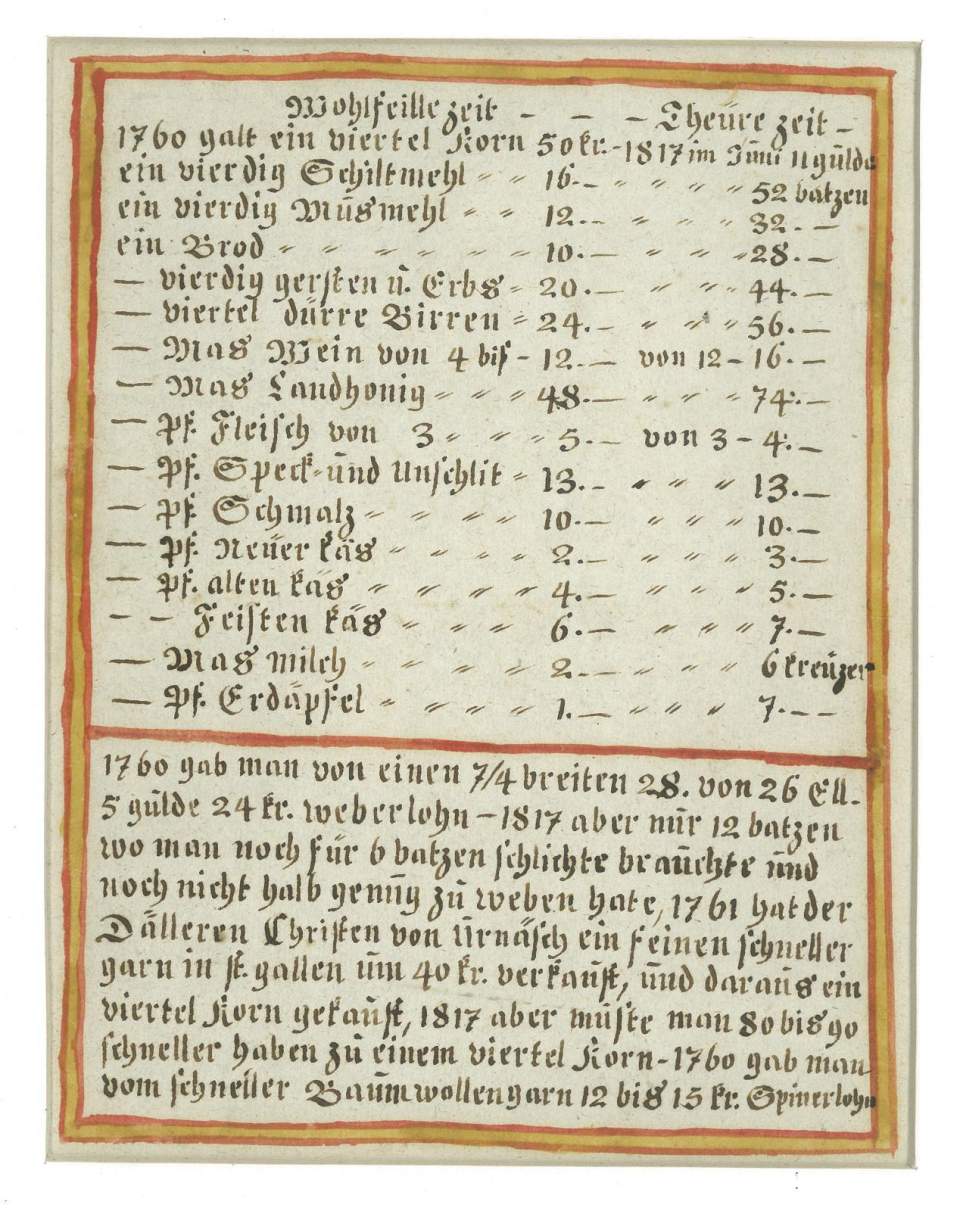 Wohlfeille zeit - - - Theüre zeit -
1760 galt ein viertel Korn 50 kr. - 1817 im Jüni 11 gülde
ein vierdig Schiltmehl " " 16. - " " " " 52 batzen
ein vierdig Müsmehl " " 12. - " " " 32. -
ein Brod " " " " " " " 10. - " " " 28. -
- vierdig gersten ü. Erbs " 20. - " " " 44. -
- viertel dürre Birren " 24. - " " " 56. -
- Mas Wein von 4 bis - 12. - von 12 - 16. -
- Mas Landhonig " " " 48. - " " " 74. -
- Pf. Fleisch von 3 " " " 5. - von 3 - 4. -
- Pf. Speck " ünd Unschlit " 13. - " " " 13. -
- Pf. Schmalz " " " " 10. - " " " 10. -
- Pf. Neüer käs " " " " 2. - " " " 3. -
- Pf. alten käs " " " " " 4. - " " " 5. -
- - Feisten käs " " " 6. - " " " 7. -
- Mas milch " " " " " 2. - " " " 6 kreüzer
- Pf. Erdäpfel " " " " " 1. - " " " 7. - -
1760 gab man von einen 7/4 breiten 28. von 26 Ell.
5 gülde 24 kr. weberlohn - 1817 aber nür 12 batzen
wo man noch für 6 batzen schlichte braüchte ünd
noch nicht halb genüg zü weben hate, 1761 hat der
Dälleren Christen von Ürnäsch ein feinen schneller
garn in st. gallen üm 40 kr. verkaüft, ünd daraüs ein
viertel Korn gekaüft, 1817 aber müste man 80 bis 90
schneller haben zü einem viertel Korn - 1760 gab man
vom schneller Baümwollengarn 12 bis 15 kr. Spinerlohn